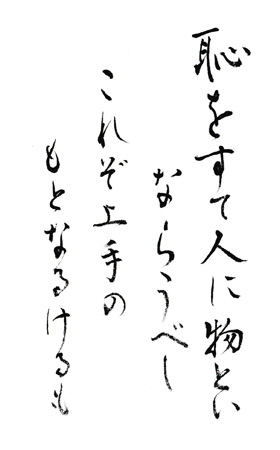 恥をすて人に物とい
ならうべし
これぞ上手の
もとなるけるも